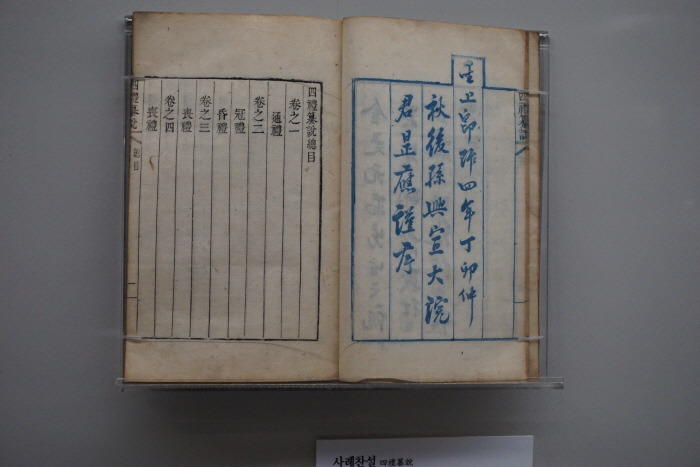 四禮纂說
聖上卽阼四年丁卯仲
秋後孫興宣大院
君昰應謹序
四禮纂說總目
卷之一
通禮
卷之二
冠禮
昏禮
卷之三
喪禮
卷之四
喪禮
四禮纂說 總目 一
사례찬설 四禮纂說